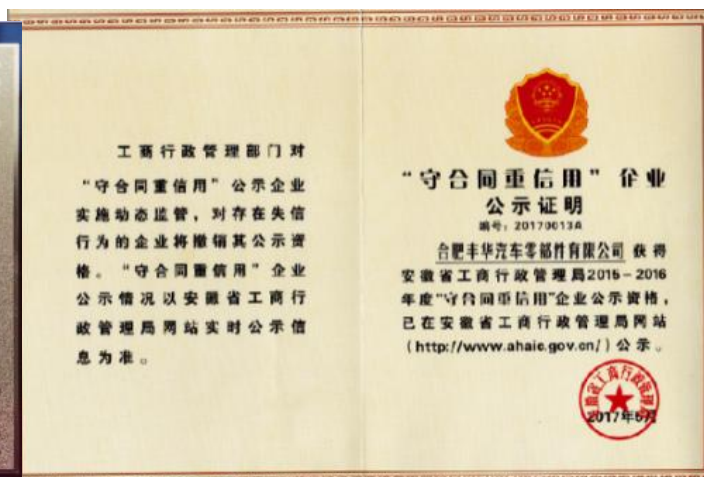 工商行政管理部门对
“守合同重信用”公示企业
实施动态监管，对存在失信
行为的企业将撤销其公示资
格。“守合同重信用”企业
公示情况以安徽省工商行
政管理局网站实时公示信
息为准。
“守合同重信用”企业
公示证明
编号：20170013A
合肥丰华汽车零部件有限公司 获得
安徽省工商行政管理局2015-2016
年度“守合同重信用”企业公示资格，
已在安徽省工商行政管理局网站
（http://www.ahaic.gov.cn/）公示。
省工商行政管理局
2017年6月